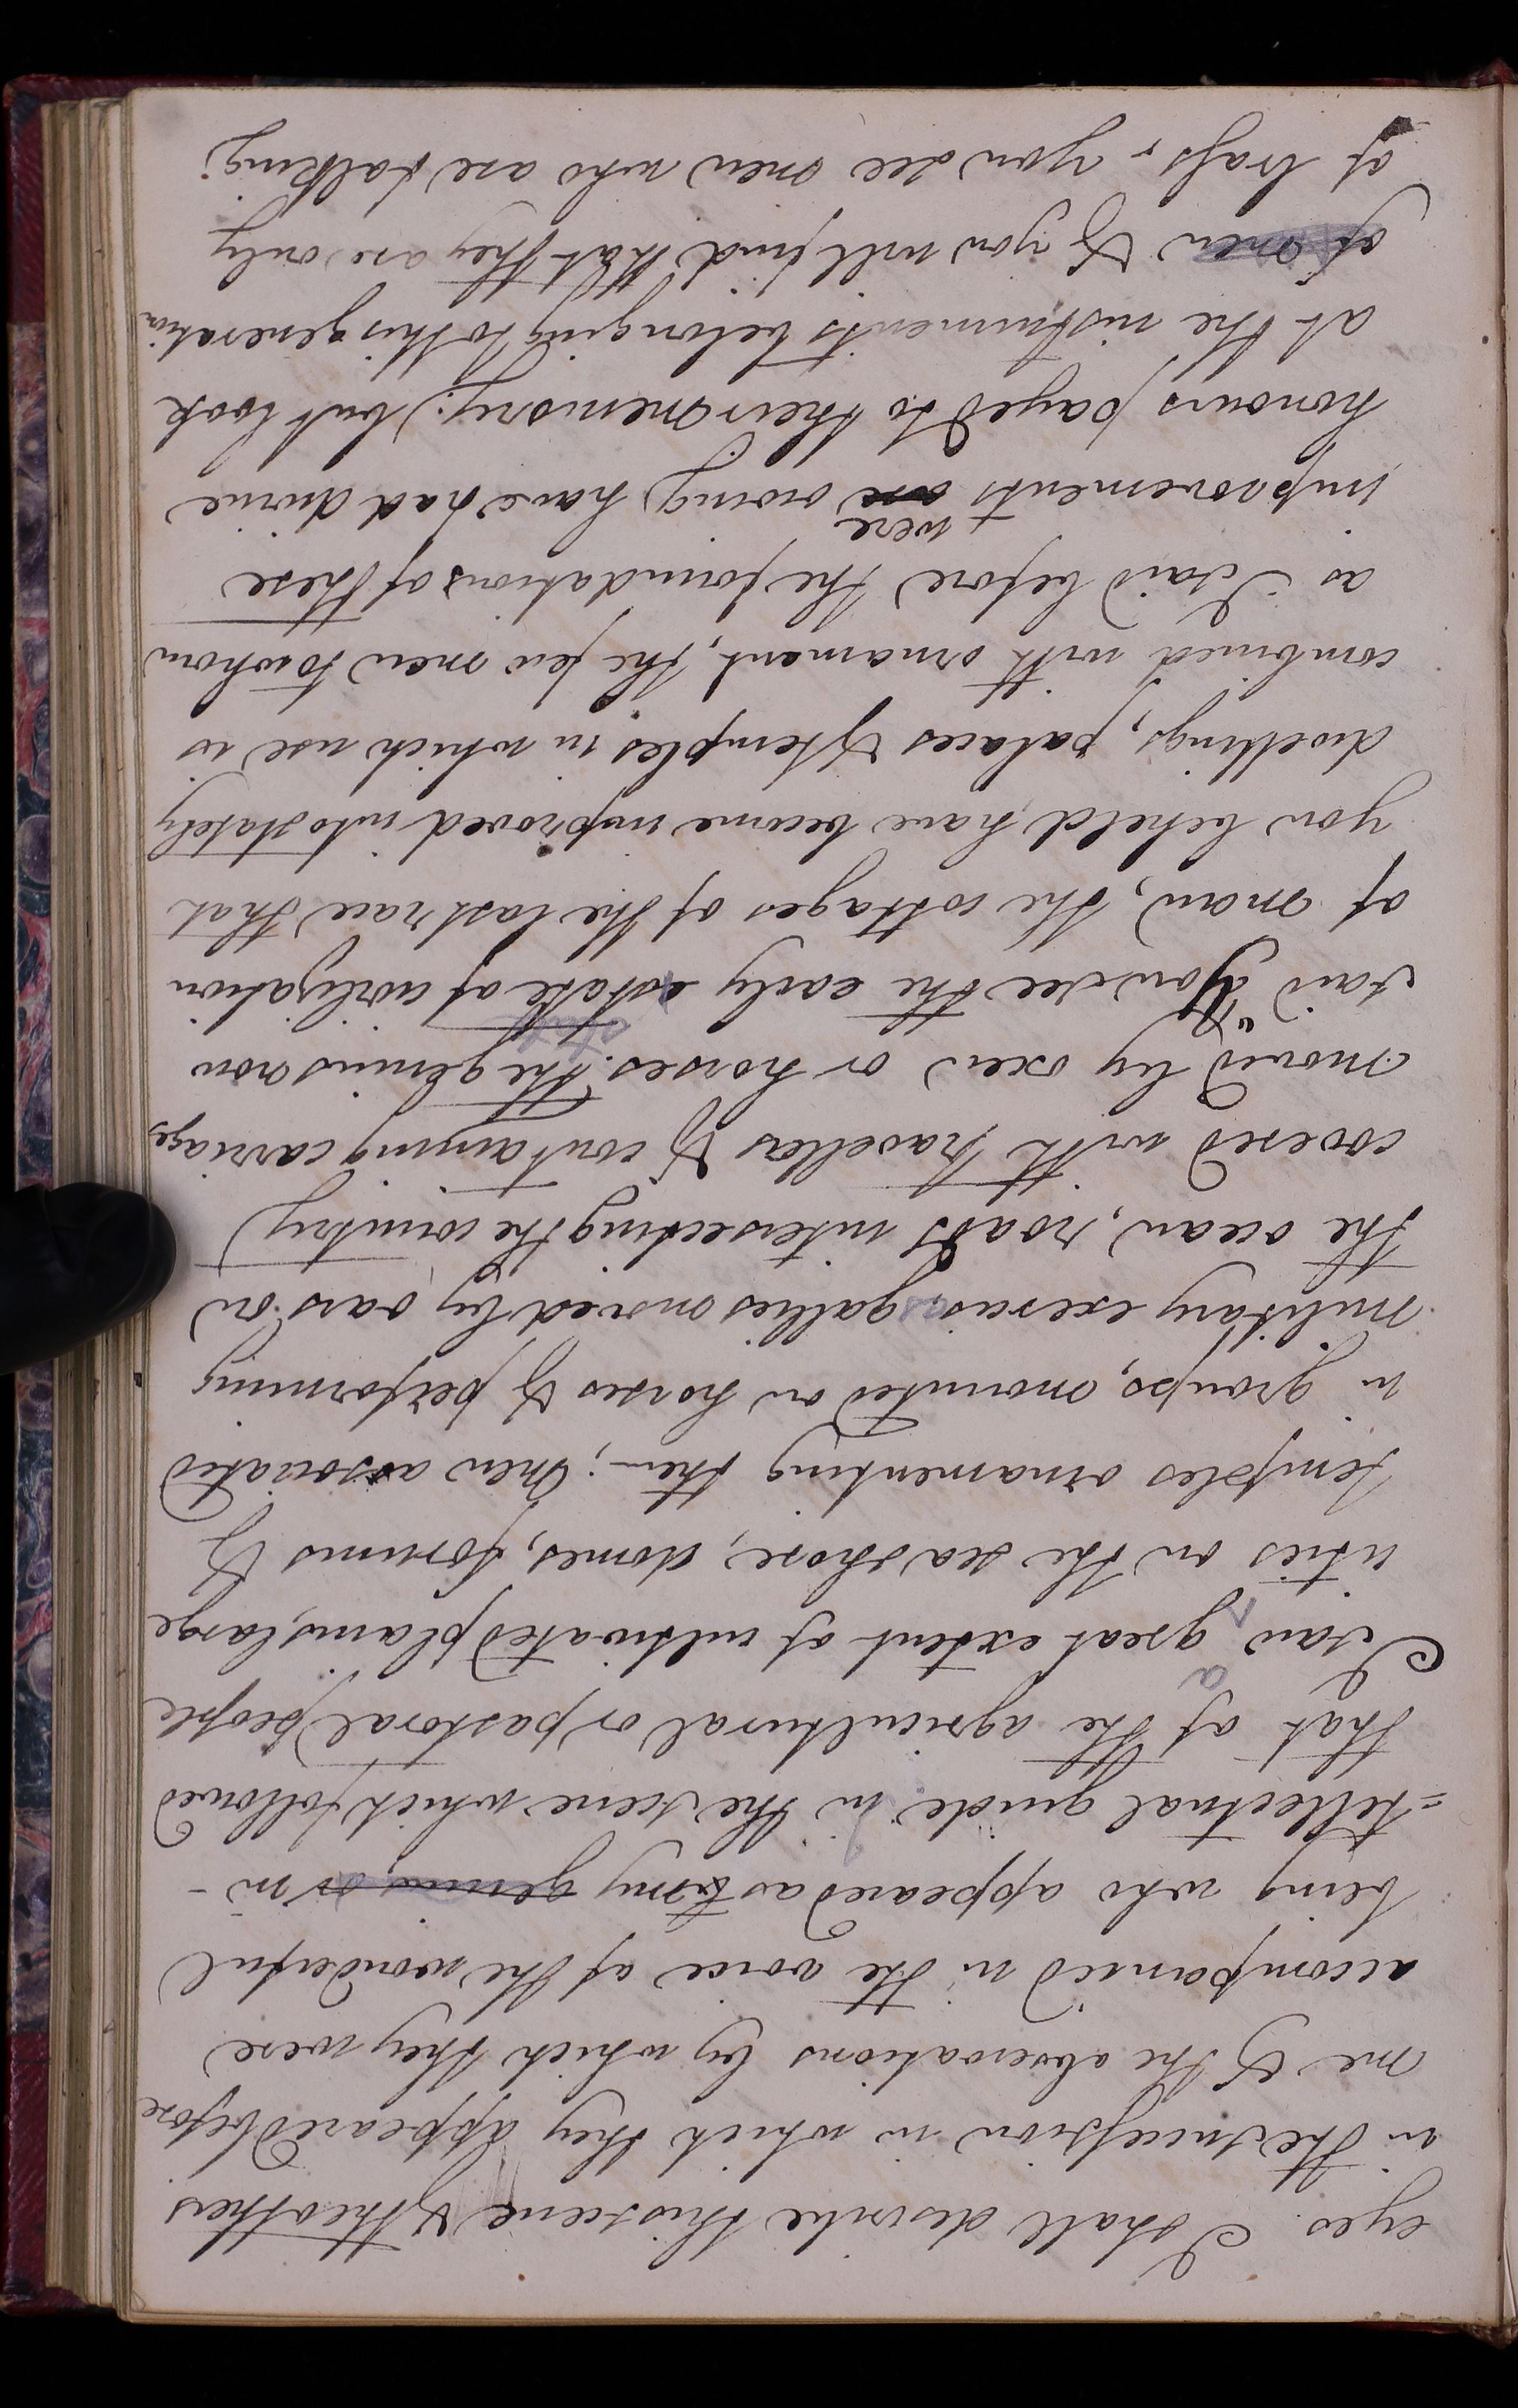 eyes. I shall describe this scene & the others
in the succession in which they appeared before
me & the observations by which they were
accompanied in the voice of the wonderful
being who appeared as to my genius, or in-
=tellectual guide. In the scene which followed
that of the agricultural or pastoral people
I saw a great extent of cultivated plains, large
cities on the sea shore, domes, forums &
temples ornamenting them; men associated
in groups, mounted on horses & performing
military exercises, gallies moved by oars on
the ocean, roads intersecting the country
covered with travellers & containing carriages
moved by oxen or horses. The genius now
said "You see the early state of civilization
state
of man, the cottages of the last race that
you beheld, have become improved into stately
dwellings, palaces & temples in which use is
combined with ornament, the few men to whom
as I said before the foundations of these
improvements are were owing, have had divine
honours payed to their memory; but look
at the instruments belonging to this generation
of men & you will find that they are only
of brass, you see men who are talking